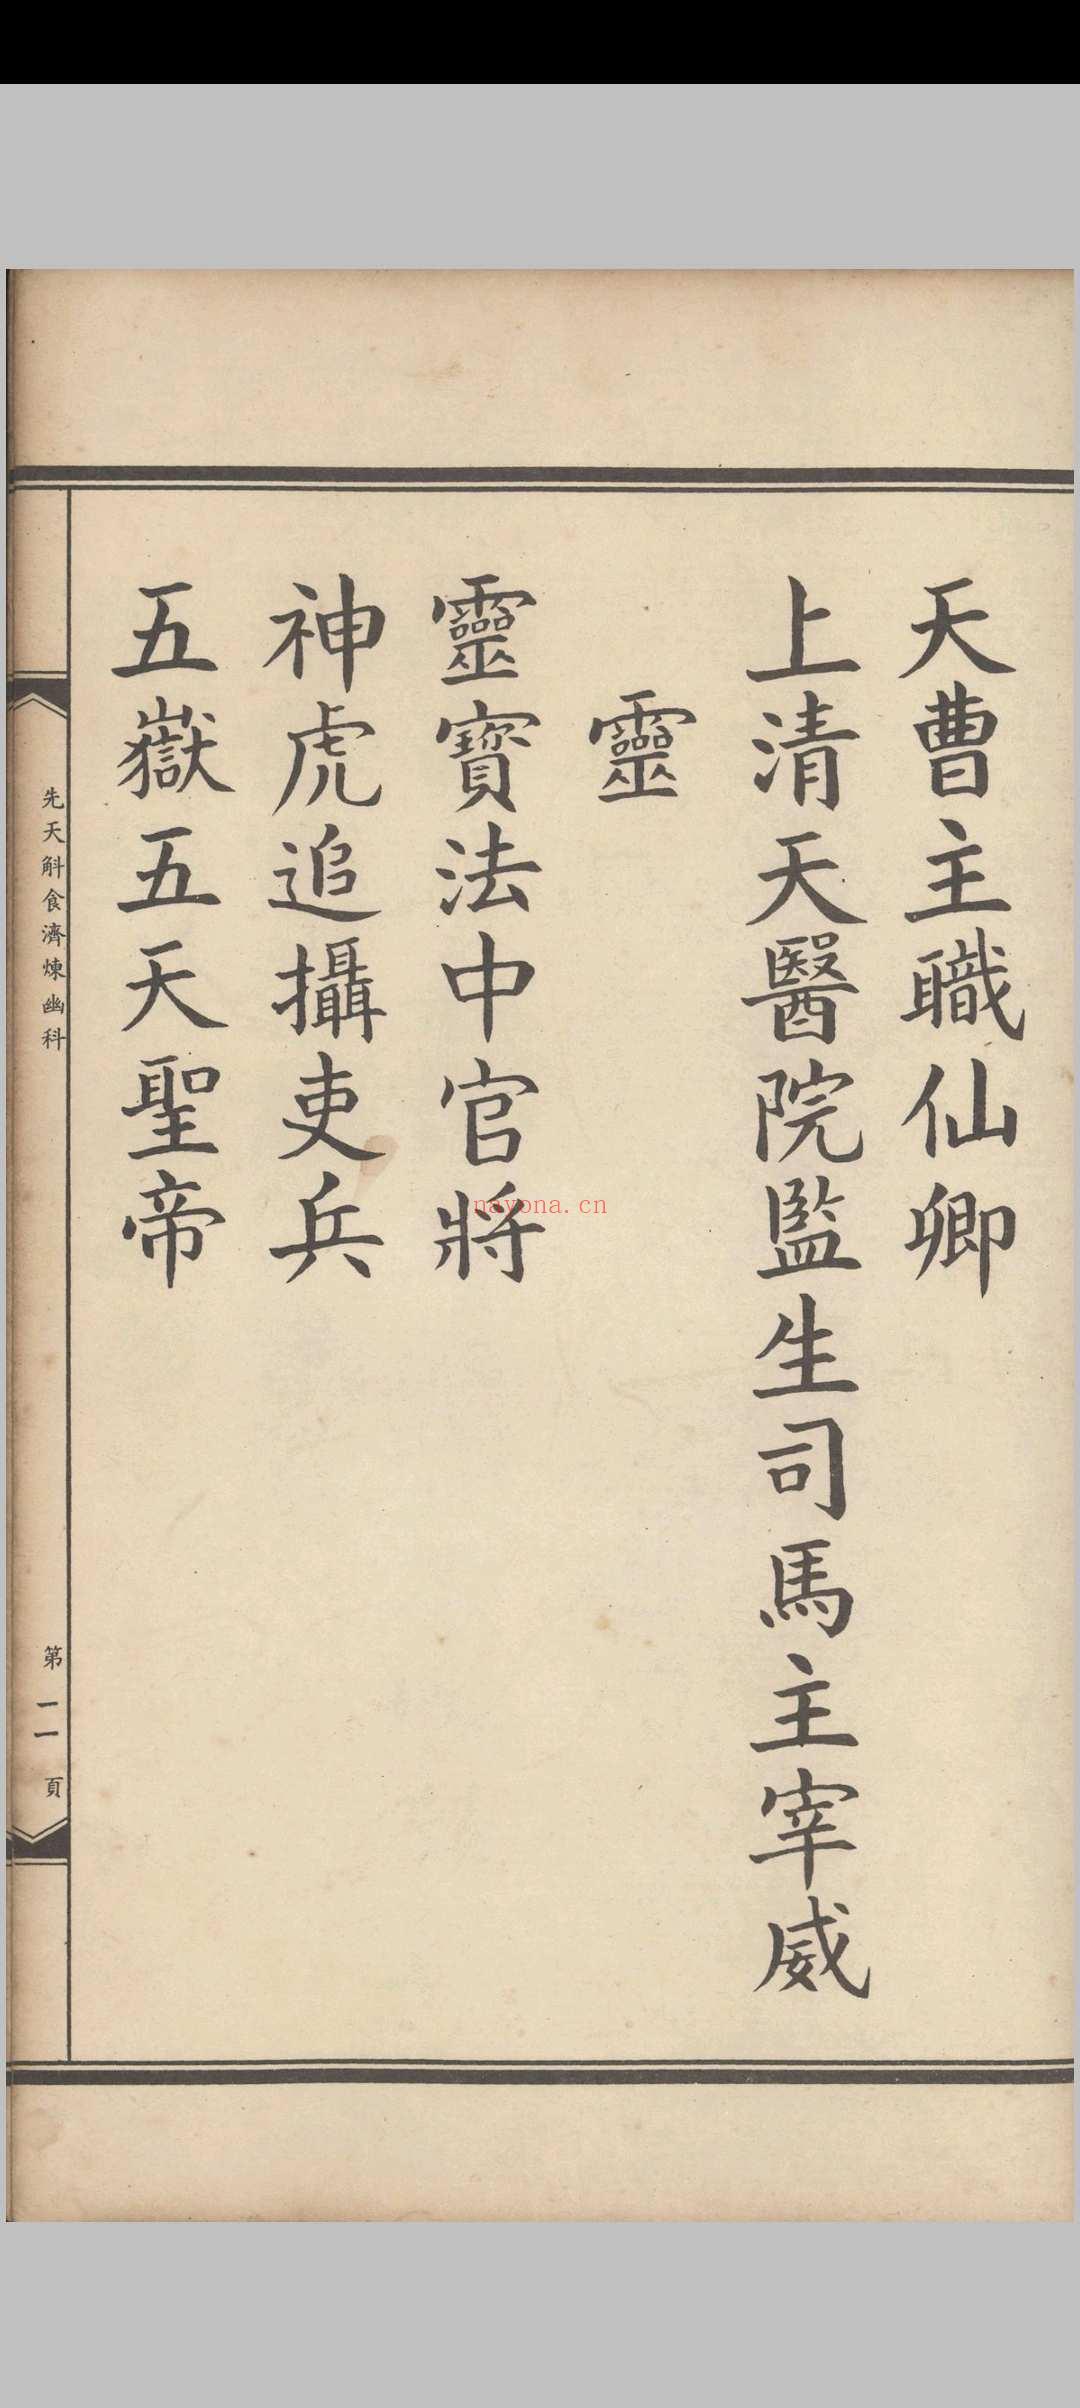 天曹主職仙卿
上清天醫院監生司馬主宰威
靈
靈寶法中官將
神虎追攝吏兵
五嶽五天聖帝
先天斛食濟煉幽科
第二頁
nayona.cn